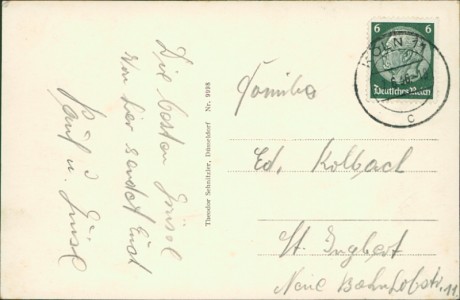 Die besten Grüsse
von hier sendet Euch
Paul u.
Theodor Schnitzler, Düsseldorf Nr. 9098
6 6
Deutsches Reich
KÖLN 11
c
Familie
Ed. Kolbach
St. Ingbert
Neue Bahnhofstr. 11.